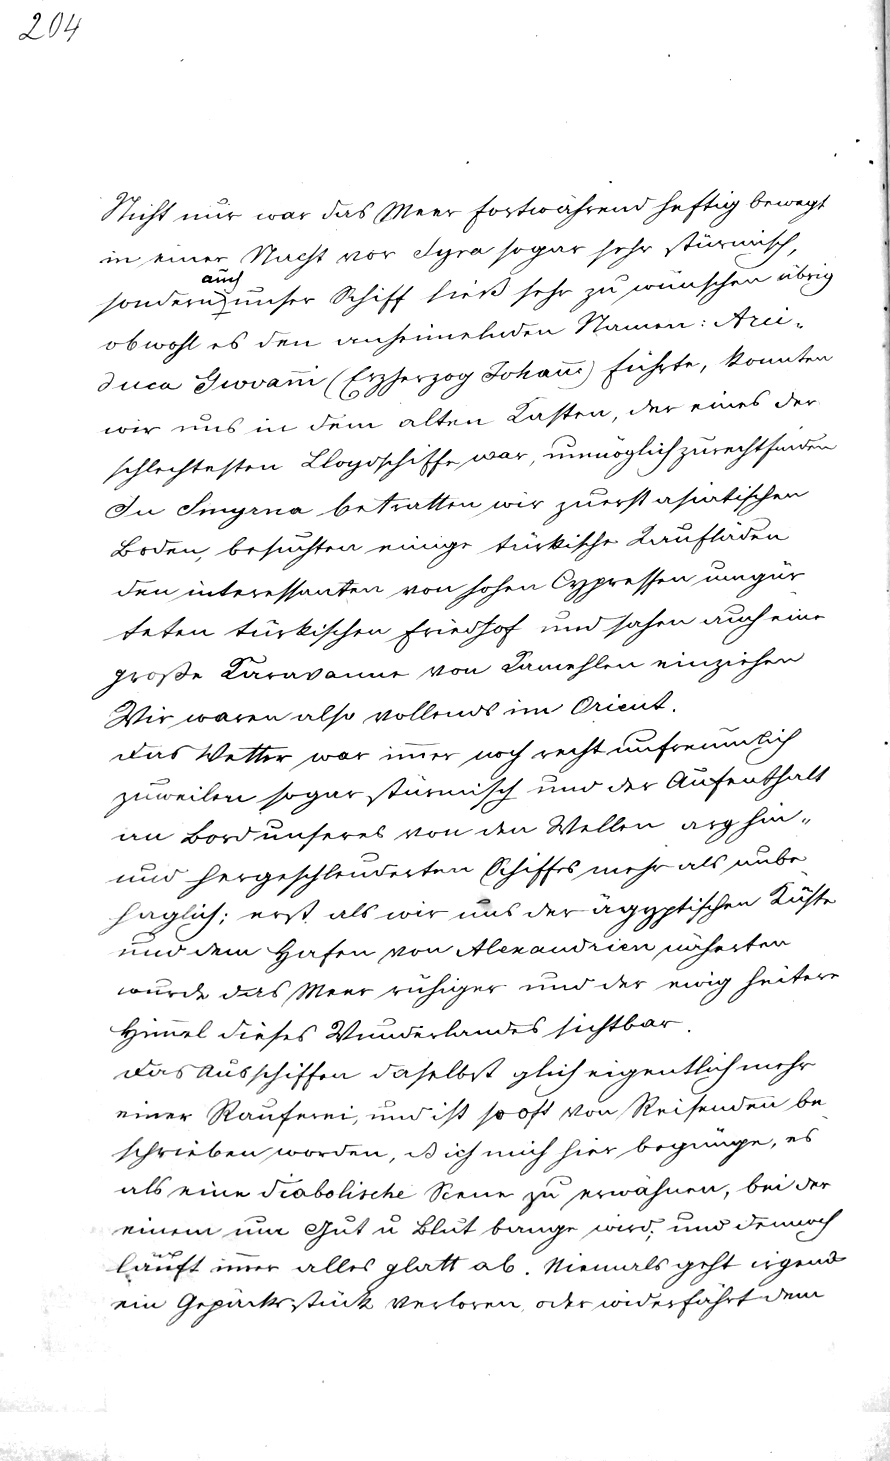 204
Nicht nur war das Meer fortwährend heftig bewegt
in einer Nacht vor Syra sogar sehr stürmisch,
auch
sondern unser Schiff ließ sehr zu wünschen übrig
obwohl es den anheimelnden Namen: Arci-
duca Giovan̅i (Erzherzog Johan̅) führte, konnten
wir uns in dem alten Kasten, der eines der
schlechtesten Lloydschiffe war, unmöglich zurechtfinden
In Smyrna betratten wir zuerst asiatischen
Boden, besuchten einige türkische Kaufläden
den interessanten von hohen Cypressen umgür
teten türkischen Friedhof und sahen auch eine
große Karavanne von Kamehlen einziehen
Wir waren also vollends im Orient.
Das Wetter war im̅er noch recht unfreundlich
zuweilen sogar stürmisch und der Aufenthalt
an Bord unseres von den Wellen arg hin-
und hergeschleuderten Schiffes mehr als unbe
haglich; erst als wir uns der ägyptischen Küste
und dem Hafen von Alexandrien näherten
wurde das Meer ruhiger und der ewig heitere
Him̅el dieses Wunderlandes sichtbar.
Das Ausschiffen daselbst glich eigentlich mehr
einer Rauferei, und ist so oft von Reisenden be
schrieben worden, ich mich hier begnüge, es
als eine diabolische Scene zu erwähnen, bei der
einem um Gut u Blut bange wird; und dennoch
läuft im̅er alles glatt ab. Niemals geht irgend
ein Gepäcksstück verloren, oder widerfährt dem